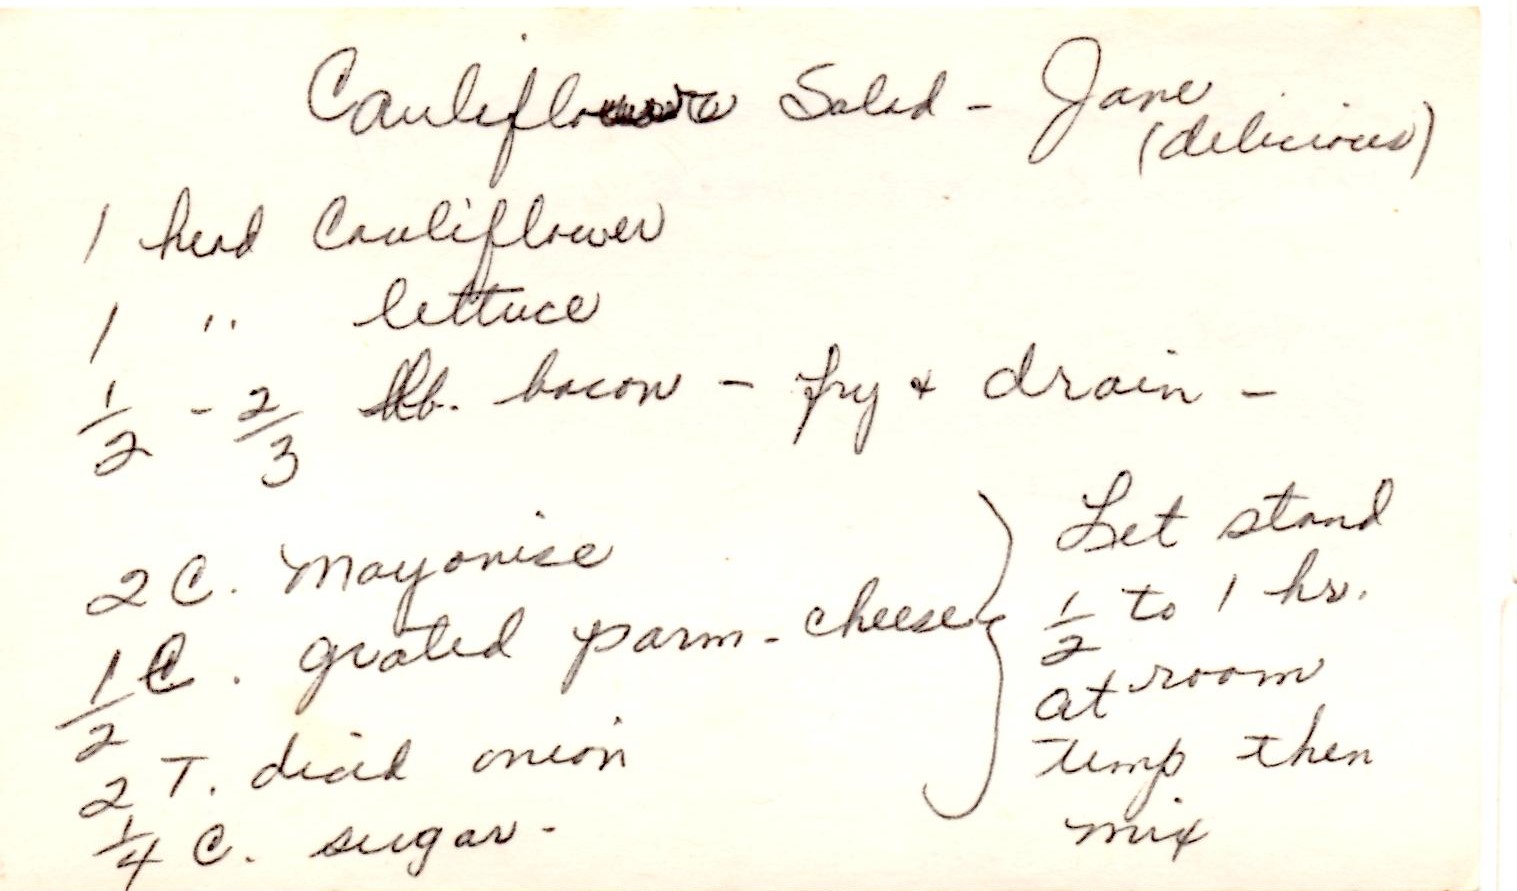 Cauliflower Salad - Jane
(delicious)
1 head Cauliflower
1 " lettuce
1/2 - 2/3 lb. bacon - fry & drain -
2 C. Mayonise
1/2 C. grated parm - cheese
2 T. diced onion
1/4 C. sugar -
Let stand
1/2 to 1 hr.
at room
temp then
mix